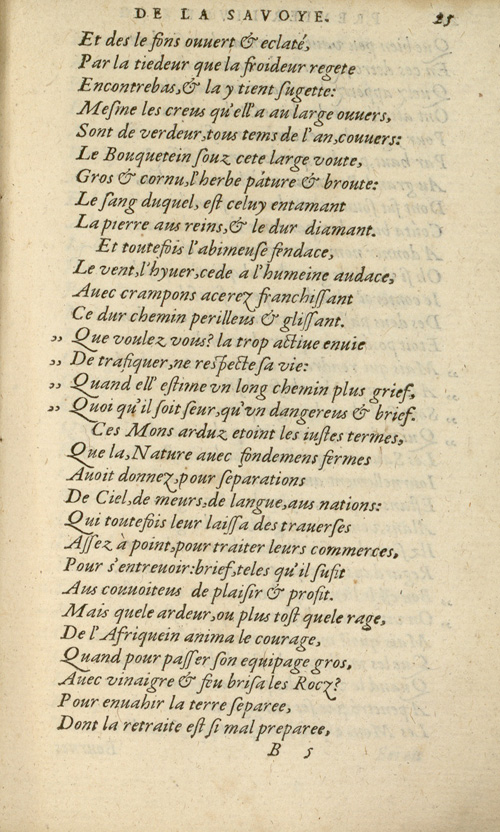 DE LA SAVOYE. 25
Et des le fons ouuert & eclaté,
Par la tiedeur que la froideur regete
Encontrebas, & la y tient sugette:
Mesme les creus qu'ell'a au large ouuers,
Sont de verdeur, tous tems de l'an, couuers:
Le Bouquetein souz cete large voute,
Gros & cornu, l'herbe páture & broute:
Le sang duquel, est celuy entamant
La pierre aus reins, & le dur diamant.
Et toutefois l'abimeuse fendace,
Le vent, l'hyuer, cede a l'humeine audace,
Auec crampons acerez franchissant
Ce dur chemin perilleus & glissant.
,, Que voulez vous? la trop actiue enuie
,, De trafiquer, ne respecte sa vie:
,, Quand ell' estime vn long chemin plus grief,
,, Quoi qu'il soit seur, qu'vn dangereus & brief.
Ces Mons arduz etoint les iustes termes,
Que la, Nature auec fondemens fermes
Auoit donnez, pour separations
De Ciel, de meurs, de langue, aus nations:
Qui toutefois leur laissa des trauerses
Assez à point, pour traiter leurs commerces,
Pour s'entreuoir: brief, teles qu'il sufit
Aus couuoiteus de plaisir & profit.
Mais quele ardeur, ou plus tost quele rage,
De l'Afriquein anima le courage,
Quand pour passer son equipage gros,
Auec vinaigre & feu brisa les Rocz?
Pour enuahir la terre separee,
Dont la retraite est si mal preparee,
B 5